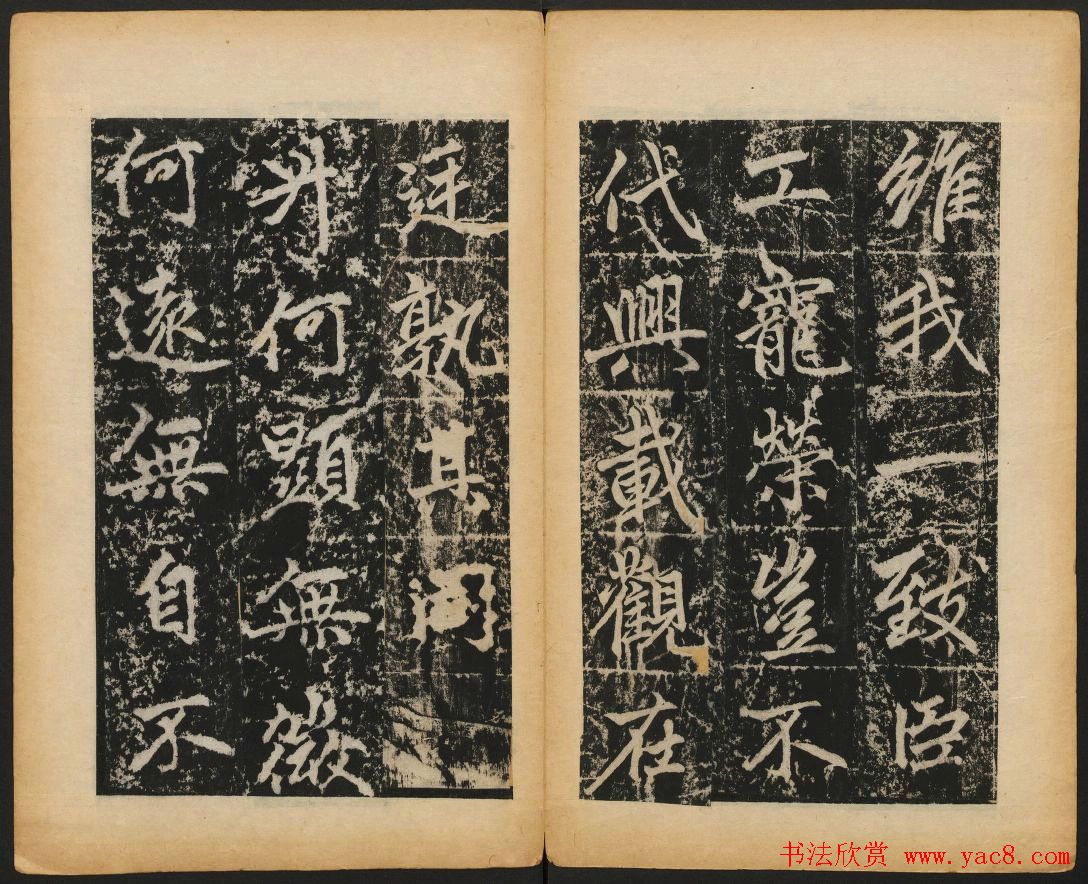 維我一致臣
工寵榮豈不
代興載觀在
廷孰其
升何顯無微
何遠無自不
书法欣赏 www.yac8.com